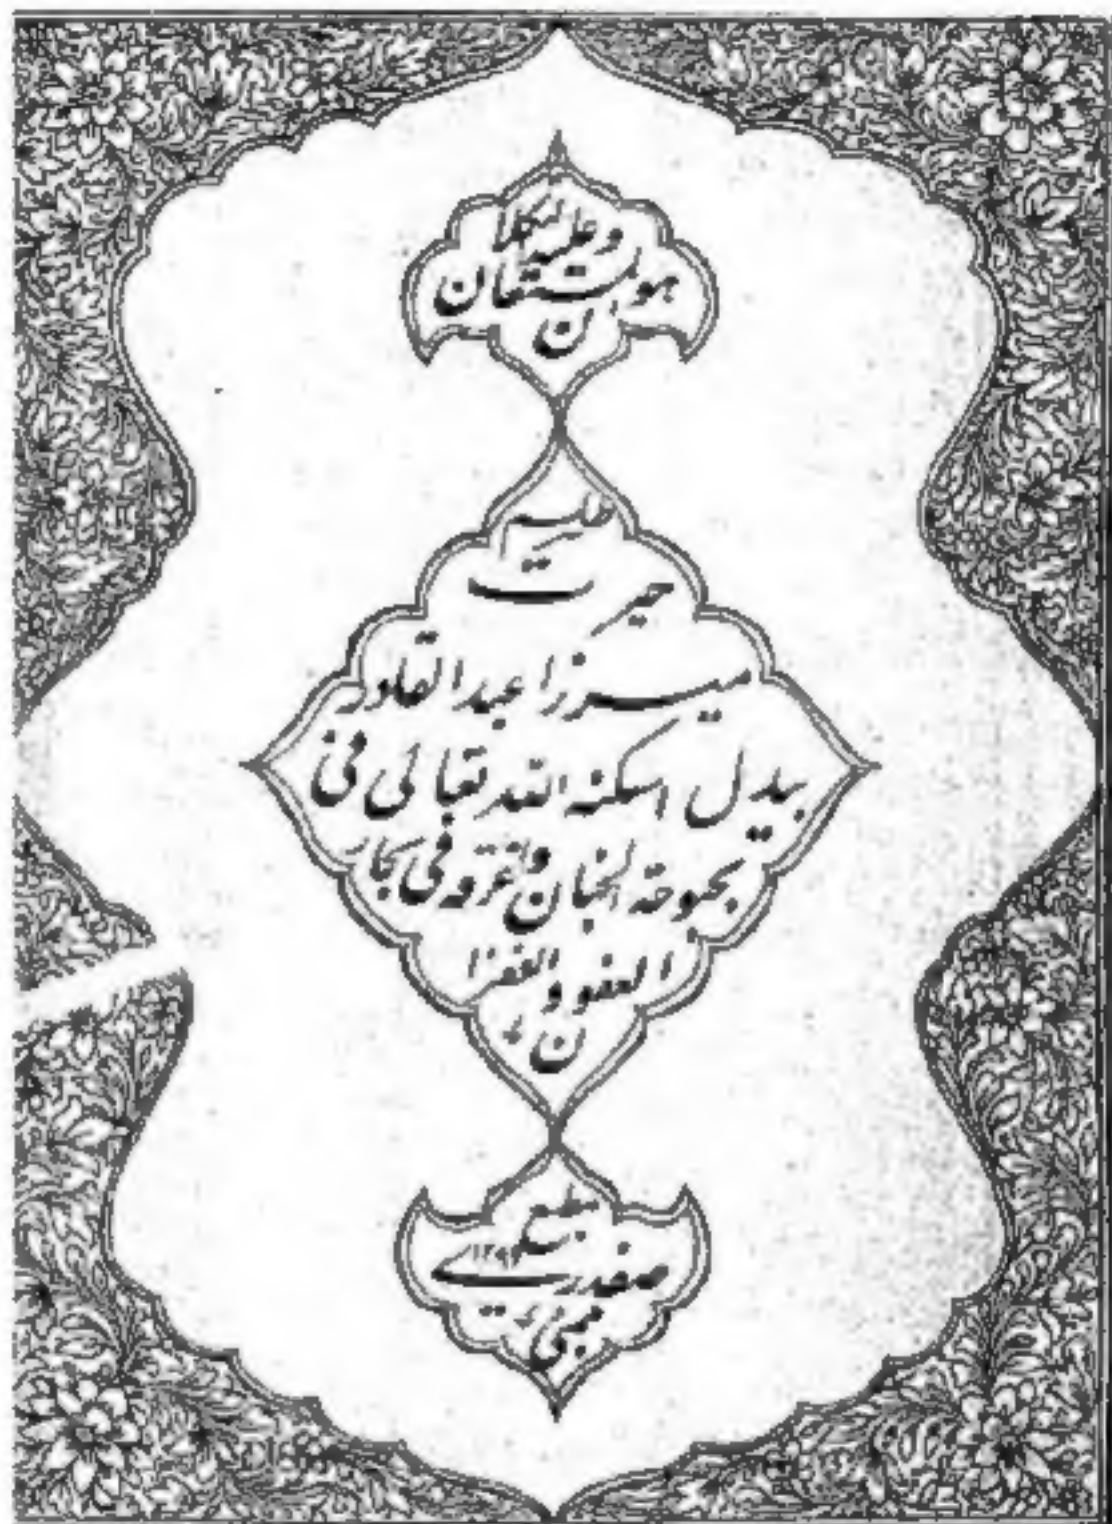 هو المستعان
وعلیه التکلا
ن
طلسم
حیرت
میرزا عبدالقادر
بیدل اسکنه الله تعالی فی
بحبوحة الجنان و اغرقه فی بحار
العفو والغفرا
ن
مطبع
صفدری
بمبئی